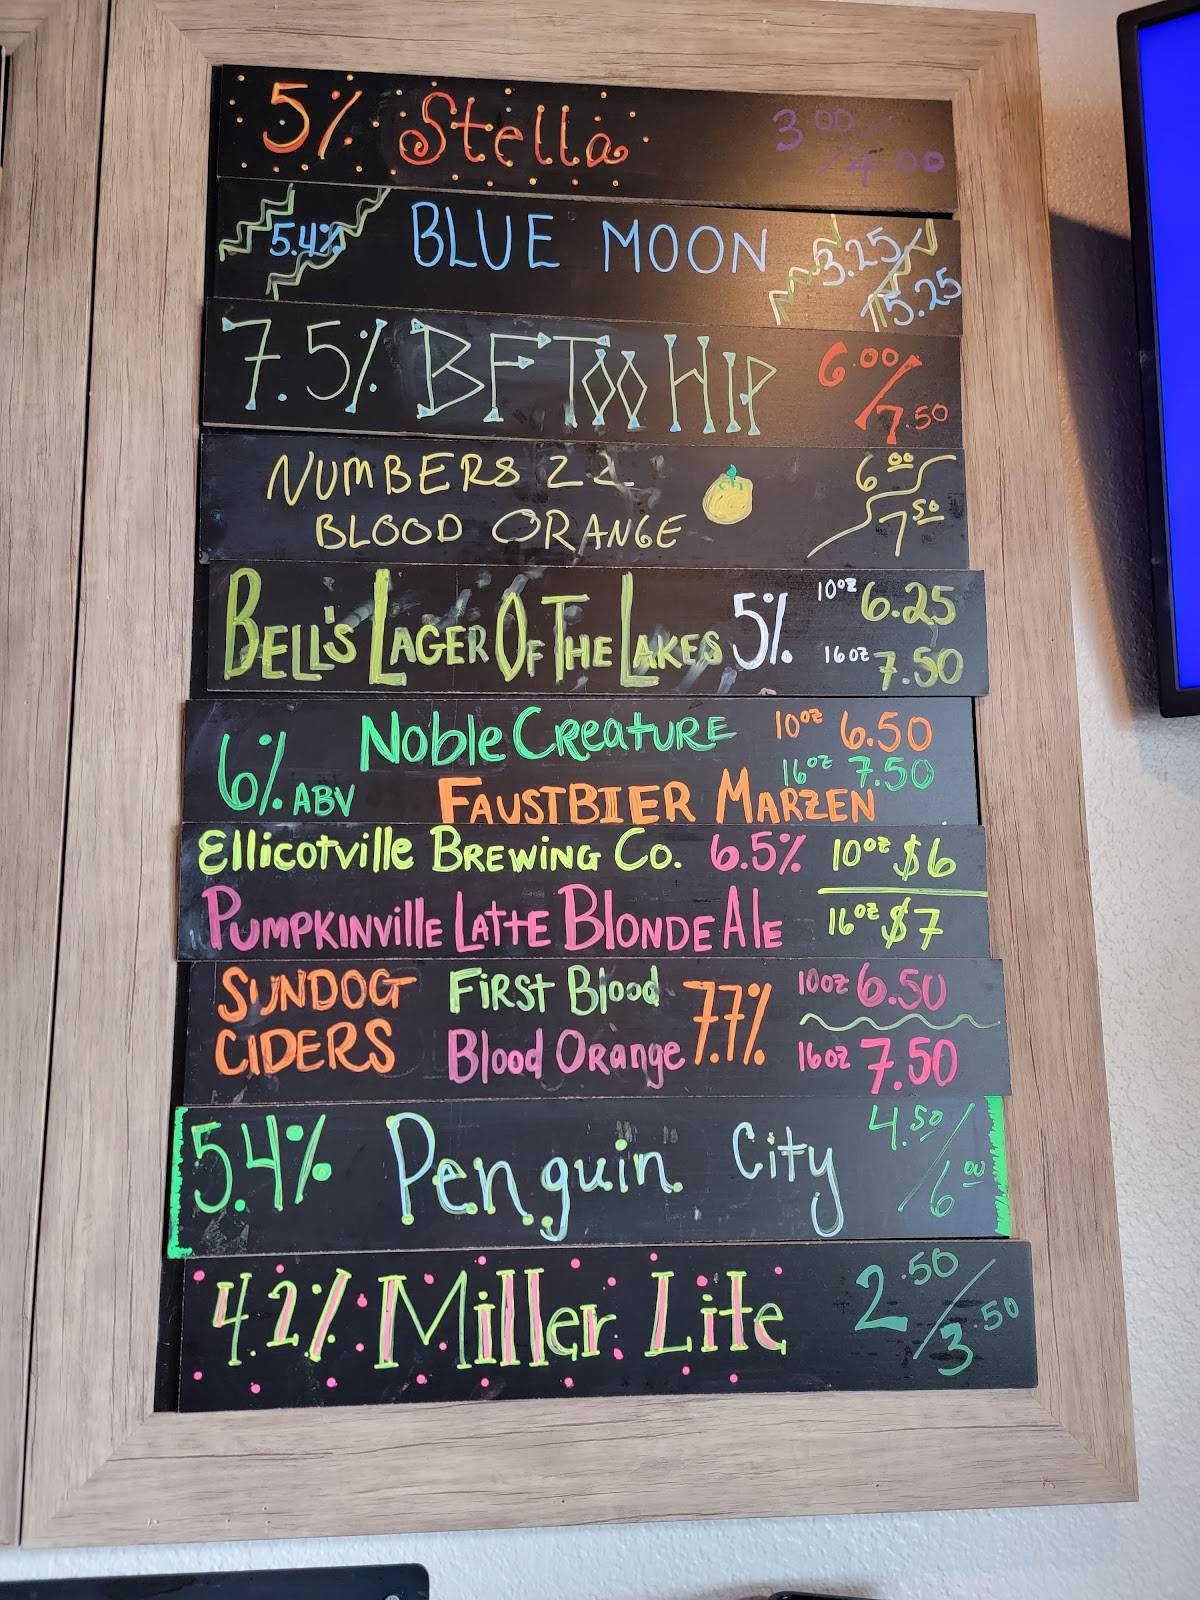 5% Stella 3.00/4.00
5.4% BLUE MOON 3.25/5.25
7.5% BF Too HIP 6.00/7.50
NUMBERS 22 6.00
BLOOD ORANGE 7.50
BELL'S LAGER OF THE LAKES 5% 10oz 6.25
16oz 7.50
Noble Creature 10oz 6.50
6% ABV 16oz 7.50
FAUSTBIER MARZEN
Ellicotville BREWING Co. 6.5% 10oz $6
PUMPKINville LATTE BLONDE Ale 16oz $7
SUNDOG FIRST Blood 7.7% 10oz 6.50
CIDERS Blood Orange 16oz 7.50
5.4% Penguin City 4.50/6.00
4.2% Miller Lite 2.50/3.50